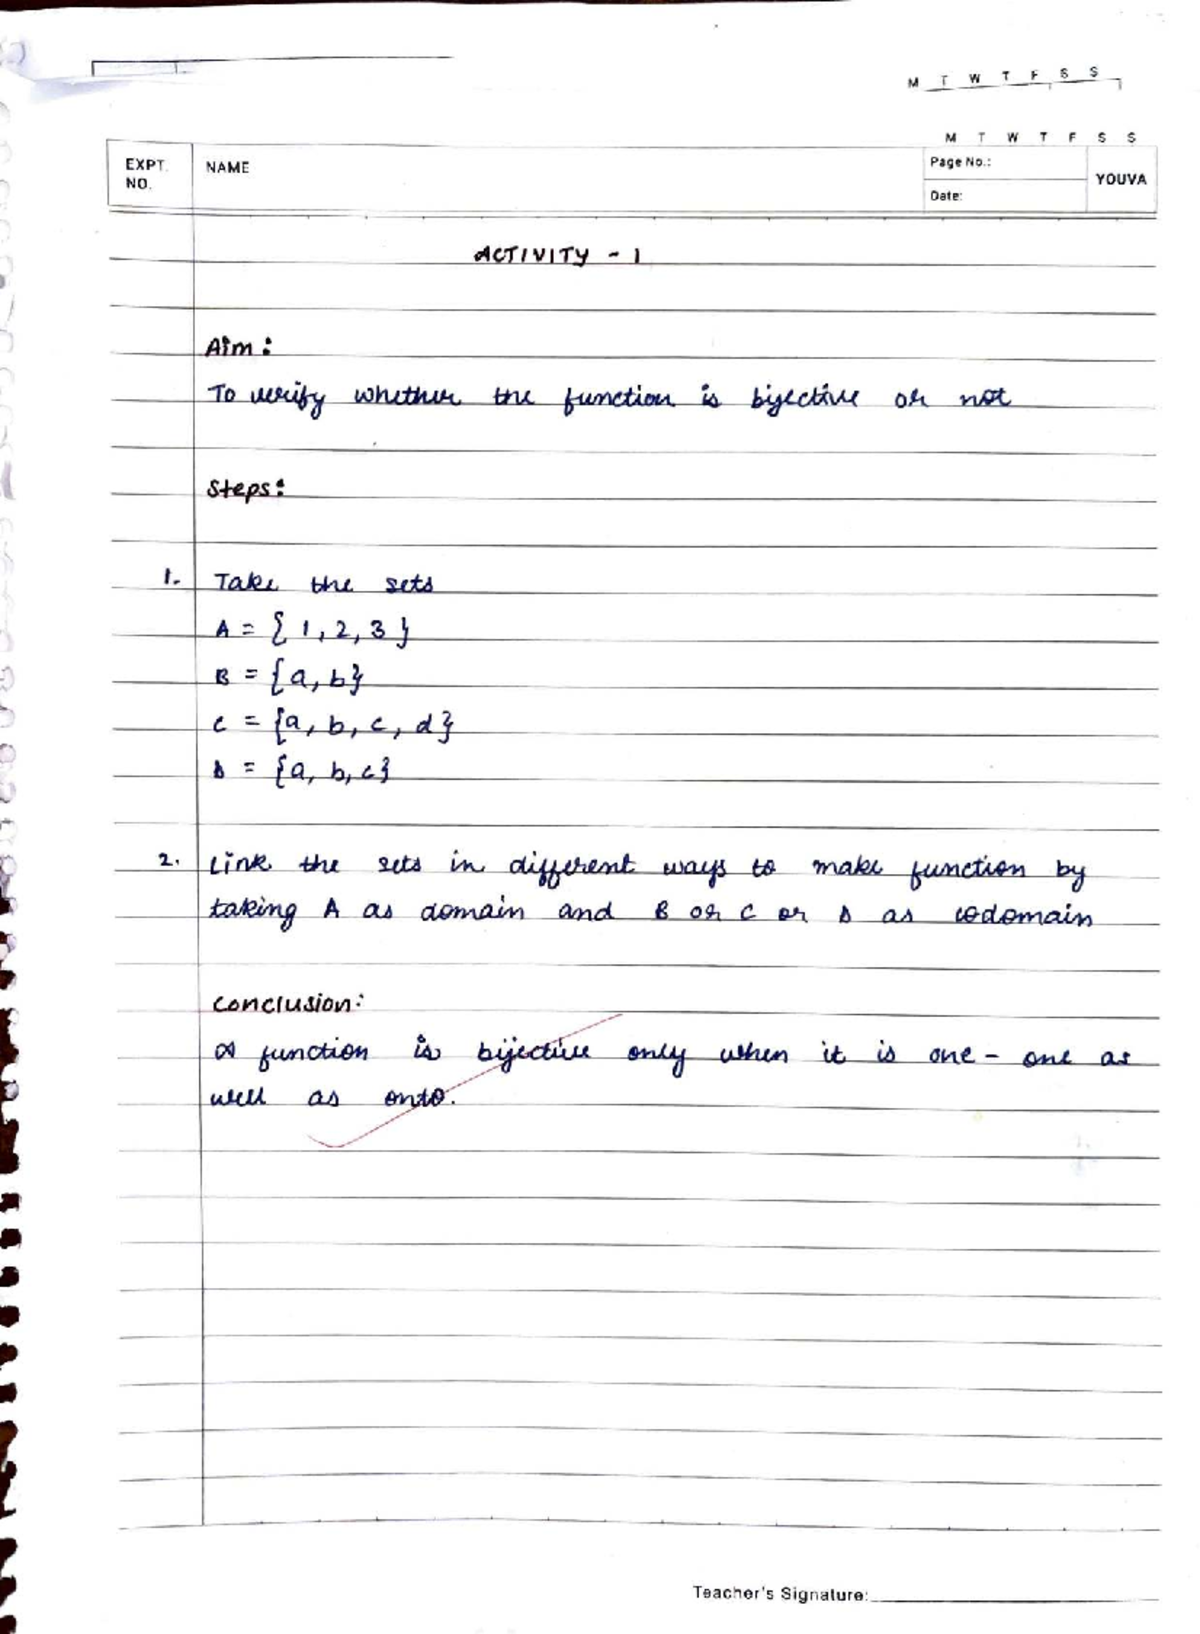 M T W T F S S
M T W T F S S
EXPT. NO.
NAME
Page No.:
Date:
YOUVA
ACTIVITY - 1
Aim:
To verify whether the function is bijective or not
Steps:
1. Take the sets
A = { 1, 2, 3 }
B = {a, b}
C = {a, b, c, d}
D = {a, b, c}
2. Link the sets in different ways to make function by
taking A as domain and B or C or D as codomain
Conclusion:
A function is bijective only when it is one - one as
well as onto.
Teacher's Signature: